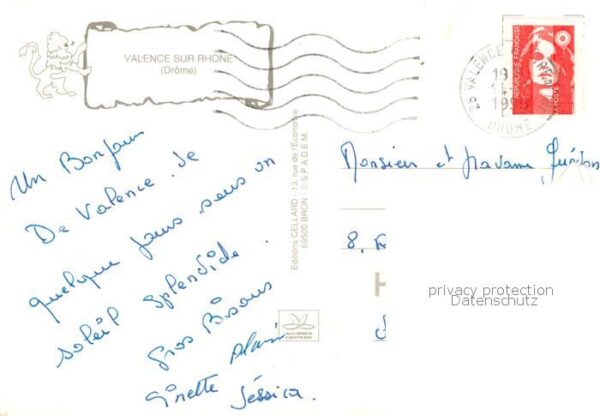 VALENCE SUR RHONE
(Drôme)
26 VALENCE
19
DROME
RÉPUBLIQUE FRANÇAISE
LA POSTE
Un Bonjour
De Valence. De
quelque jours sous un
soleil splendide.
Gros Bisous
Alain
Ginette
Jéssica.
Editions CELLARD - 13, rue de l'Economie
69500 BRON - © S.P.A.D.E.M.
Monsieur et Madame
8,
ALLIANCE
CARTERIE
privacy protection
Datenschutz